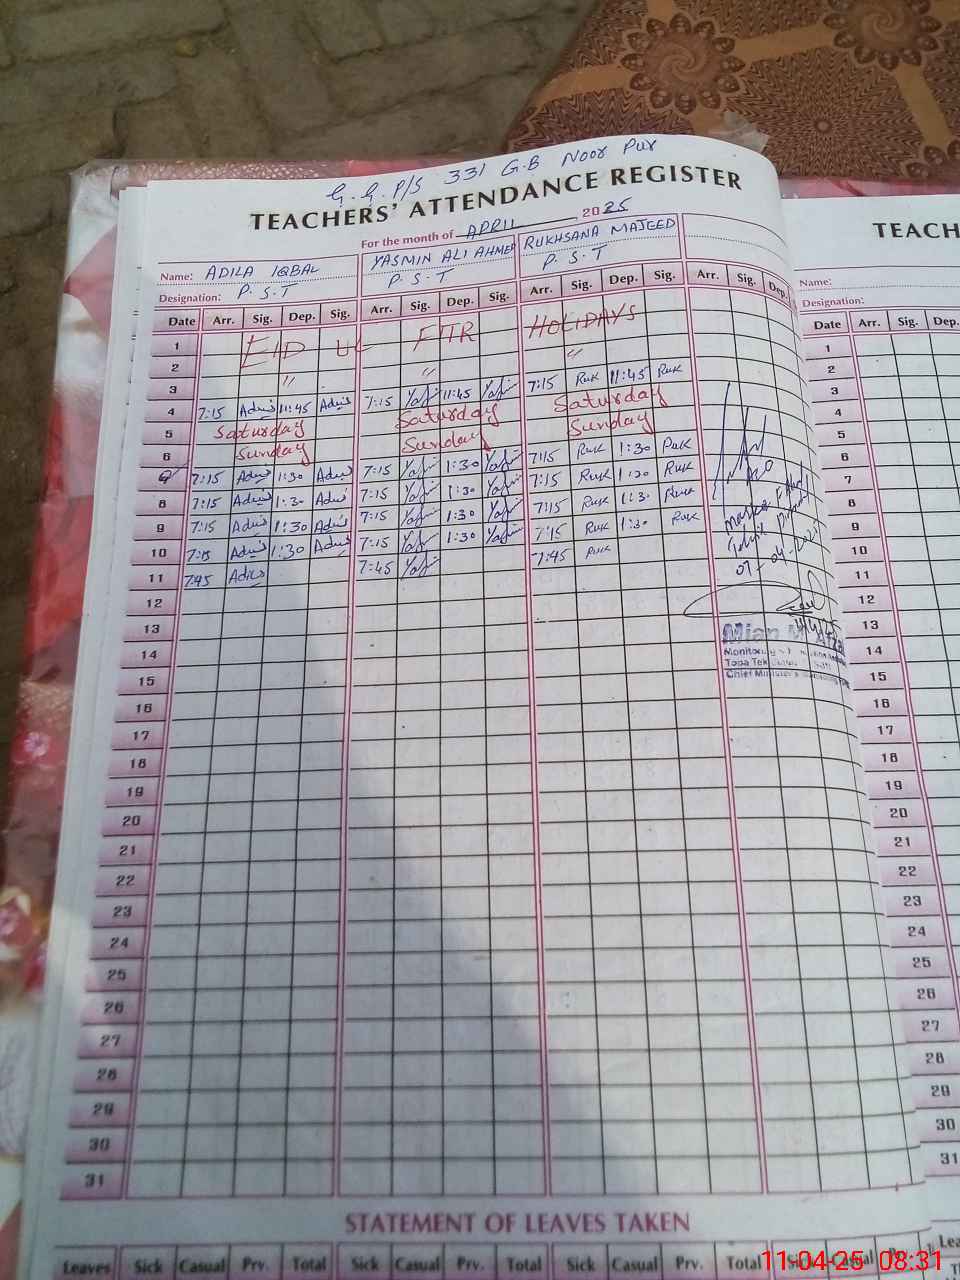 G.G.P/S 331 G.B Noor Pur
TEACHERS' ATTENDANCE REGISTER
For the month of APRIL 2025
Name: ADILA IQBAL YASMIN ALI AHMED RUKHSANA MAJEED
Designation: P.S.T P.S.T P.S.T
Date Arr. Sig. Dep. Sig. Arr. Sig. Dep. Sig. Arr. Sig. Dep. Sig. Arr. Sig. Dep.
1 EID UL FITR HOLIDAYS
2 " " "
3
4 7:15 11:45 7:15 11:45 7:15 Ruk 11:45 Ruk
5 Saturday Saturday Saturday
6 Sunday Sunday Sunday
7:15 1:30 7:15 1:30 7:15 Ruk 1:30 Ruk
8 7:15 1:30 7:15 1:30 7:15 Ruk 1:30 Ruk
9 7:15 1:30 7:15 1:30 7:15 Ruk 1:30 Ruk
10 7:15 1:30 7:15 1:30 7:15 Ruk 1:30 Ruk
11 7:45 7:45 7:45 Ruk
12
13
14
15
16
17
18
19
20
21
22
23
24
25
26
27
28
29
30
31
Mian
Monitoring
Toba Tek
Chief Minister's
STATEMENT OF LEAVES TAKEN
Leaves Sick Casual Prv. Total Sick Casual Prv. Total Sick Casual Prv. Total Sick Casual
TEACH
Name:
Designation:
Date Arr. Sig. Dep.
1
2
3
4
5
6
7
8
9
10
11
12
13
14
15
16
17
18
19
20
21
22
23
24
25
26
27
28
29
30
31
11-04-25 08:31